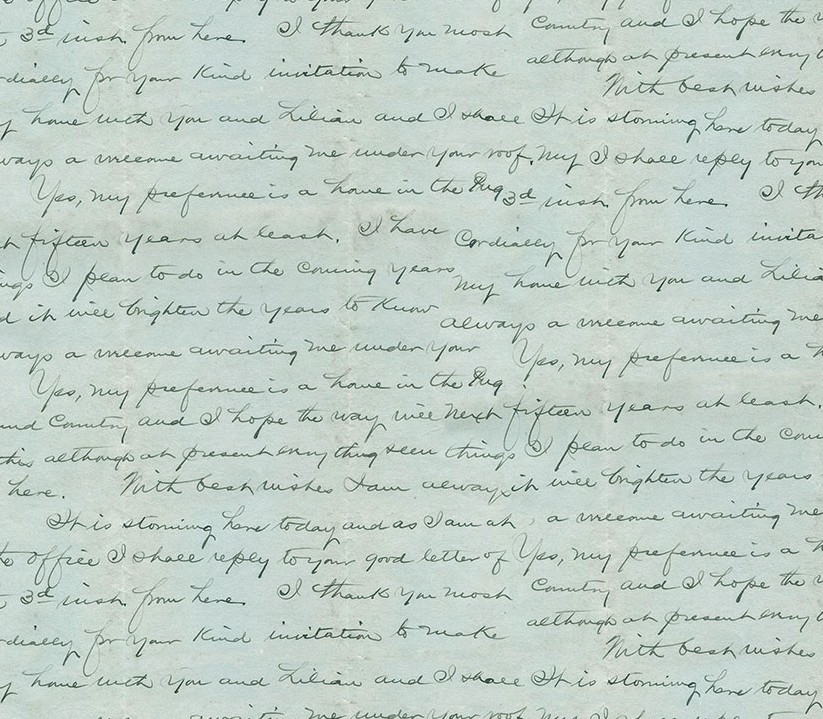 3d inst. from here. I thank you most Country and I hope the
rdially for your kind invitation to make although at present every
With best wishes
my home with you and Lilian and I shall It is storming here today
ways a welcome awaiting me under your roof. My I shall reply to your
Yes, my preference is a home in the Pug 3d inst. from here. I th
fifteen years at least. I have Cordially for your kind invita
ings I plan to do in the coming years my home with you and Lilia
d it will brighten the years to know always a welcome awaiting me
ways a welcome awaiting me under your Yes, my preference is a h
Yes, my preference is a home in the Pug
and Country and I hope the way will next fifteen years at least.
this although at present everything seem things I plan to do in the com
here. With best wishes I am always it will brighten the years
It is storming here today and as I am at a welcome awaiting me
office I shall reply to your good letter of Yes, my preference is a h
3d inst. from here. I thank you most Country and I hope the
rdially for your kind invitation to make although at present every
With best wishes
my home with you and Lilian and I shall It is storming here today
awaiting me under your roof. My I shall reply to